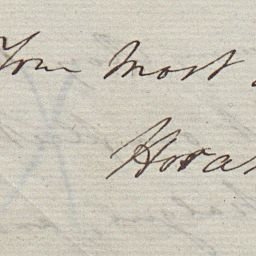 Your most
Hora